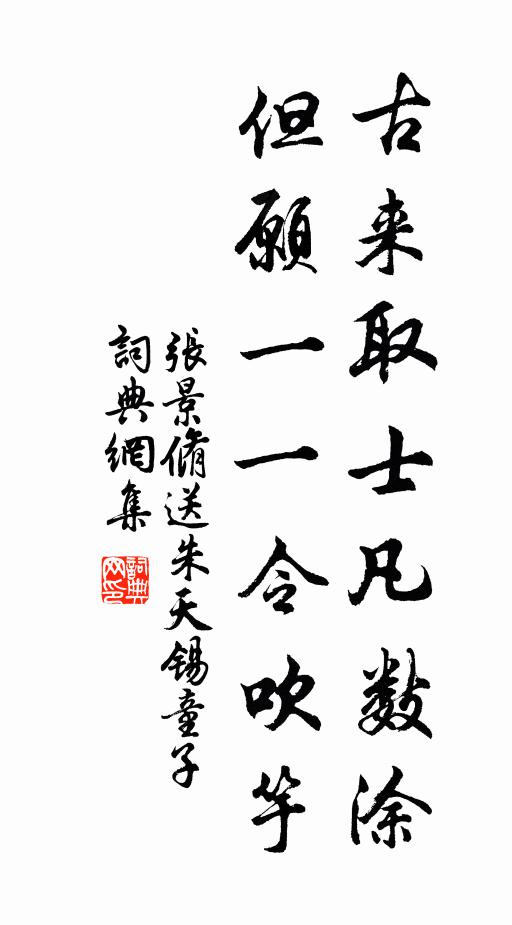 古来取士凡数涂
但願一一令吹竽
張景脩送朱天锡童子
詞典網集
詞典网印